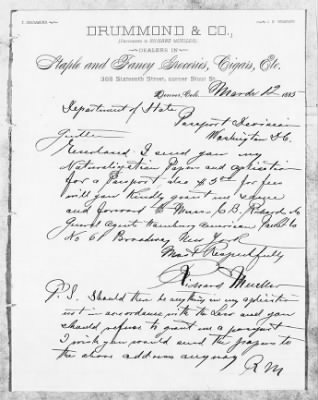 DRUMMOND & CO.,
(SUCCESSORS TO RICHARD MUELLER)
DEALERS IN
Staple and Fancy Groceries, Cigars, Etc.
Sixteenth Street, corner Stout St.
Denver, Colo. March 12 1885
Department of State
Passport Division
Washington D.C.
Gentlm
Enclosed I send you my
Naturalization Papers and aplication
for a Passport, also $ 5 00 for fees
will you kindly grant me same
and forward to Messrs C.B. Richard &
General Agents Hamburg American
No 61 Broadway New York
Most Respectfully
Richard Mueller
P.S. Should there be anything in my aplication
not in accordance with the Law and you
should refuse to grant me a passport
I wish you would send the papers to
the above address anyway R M